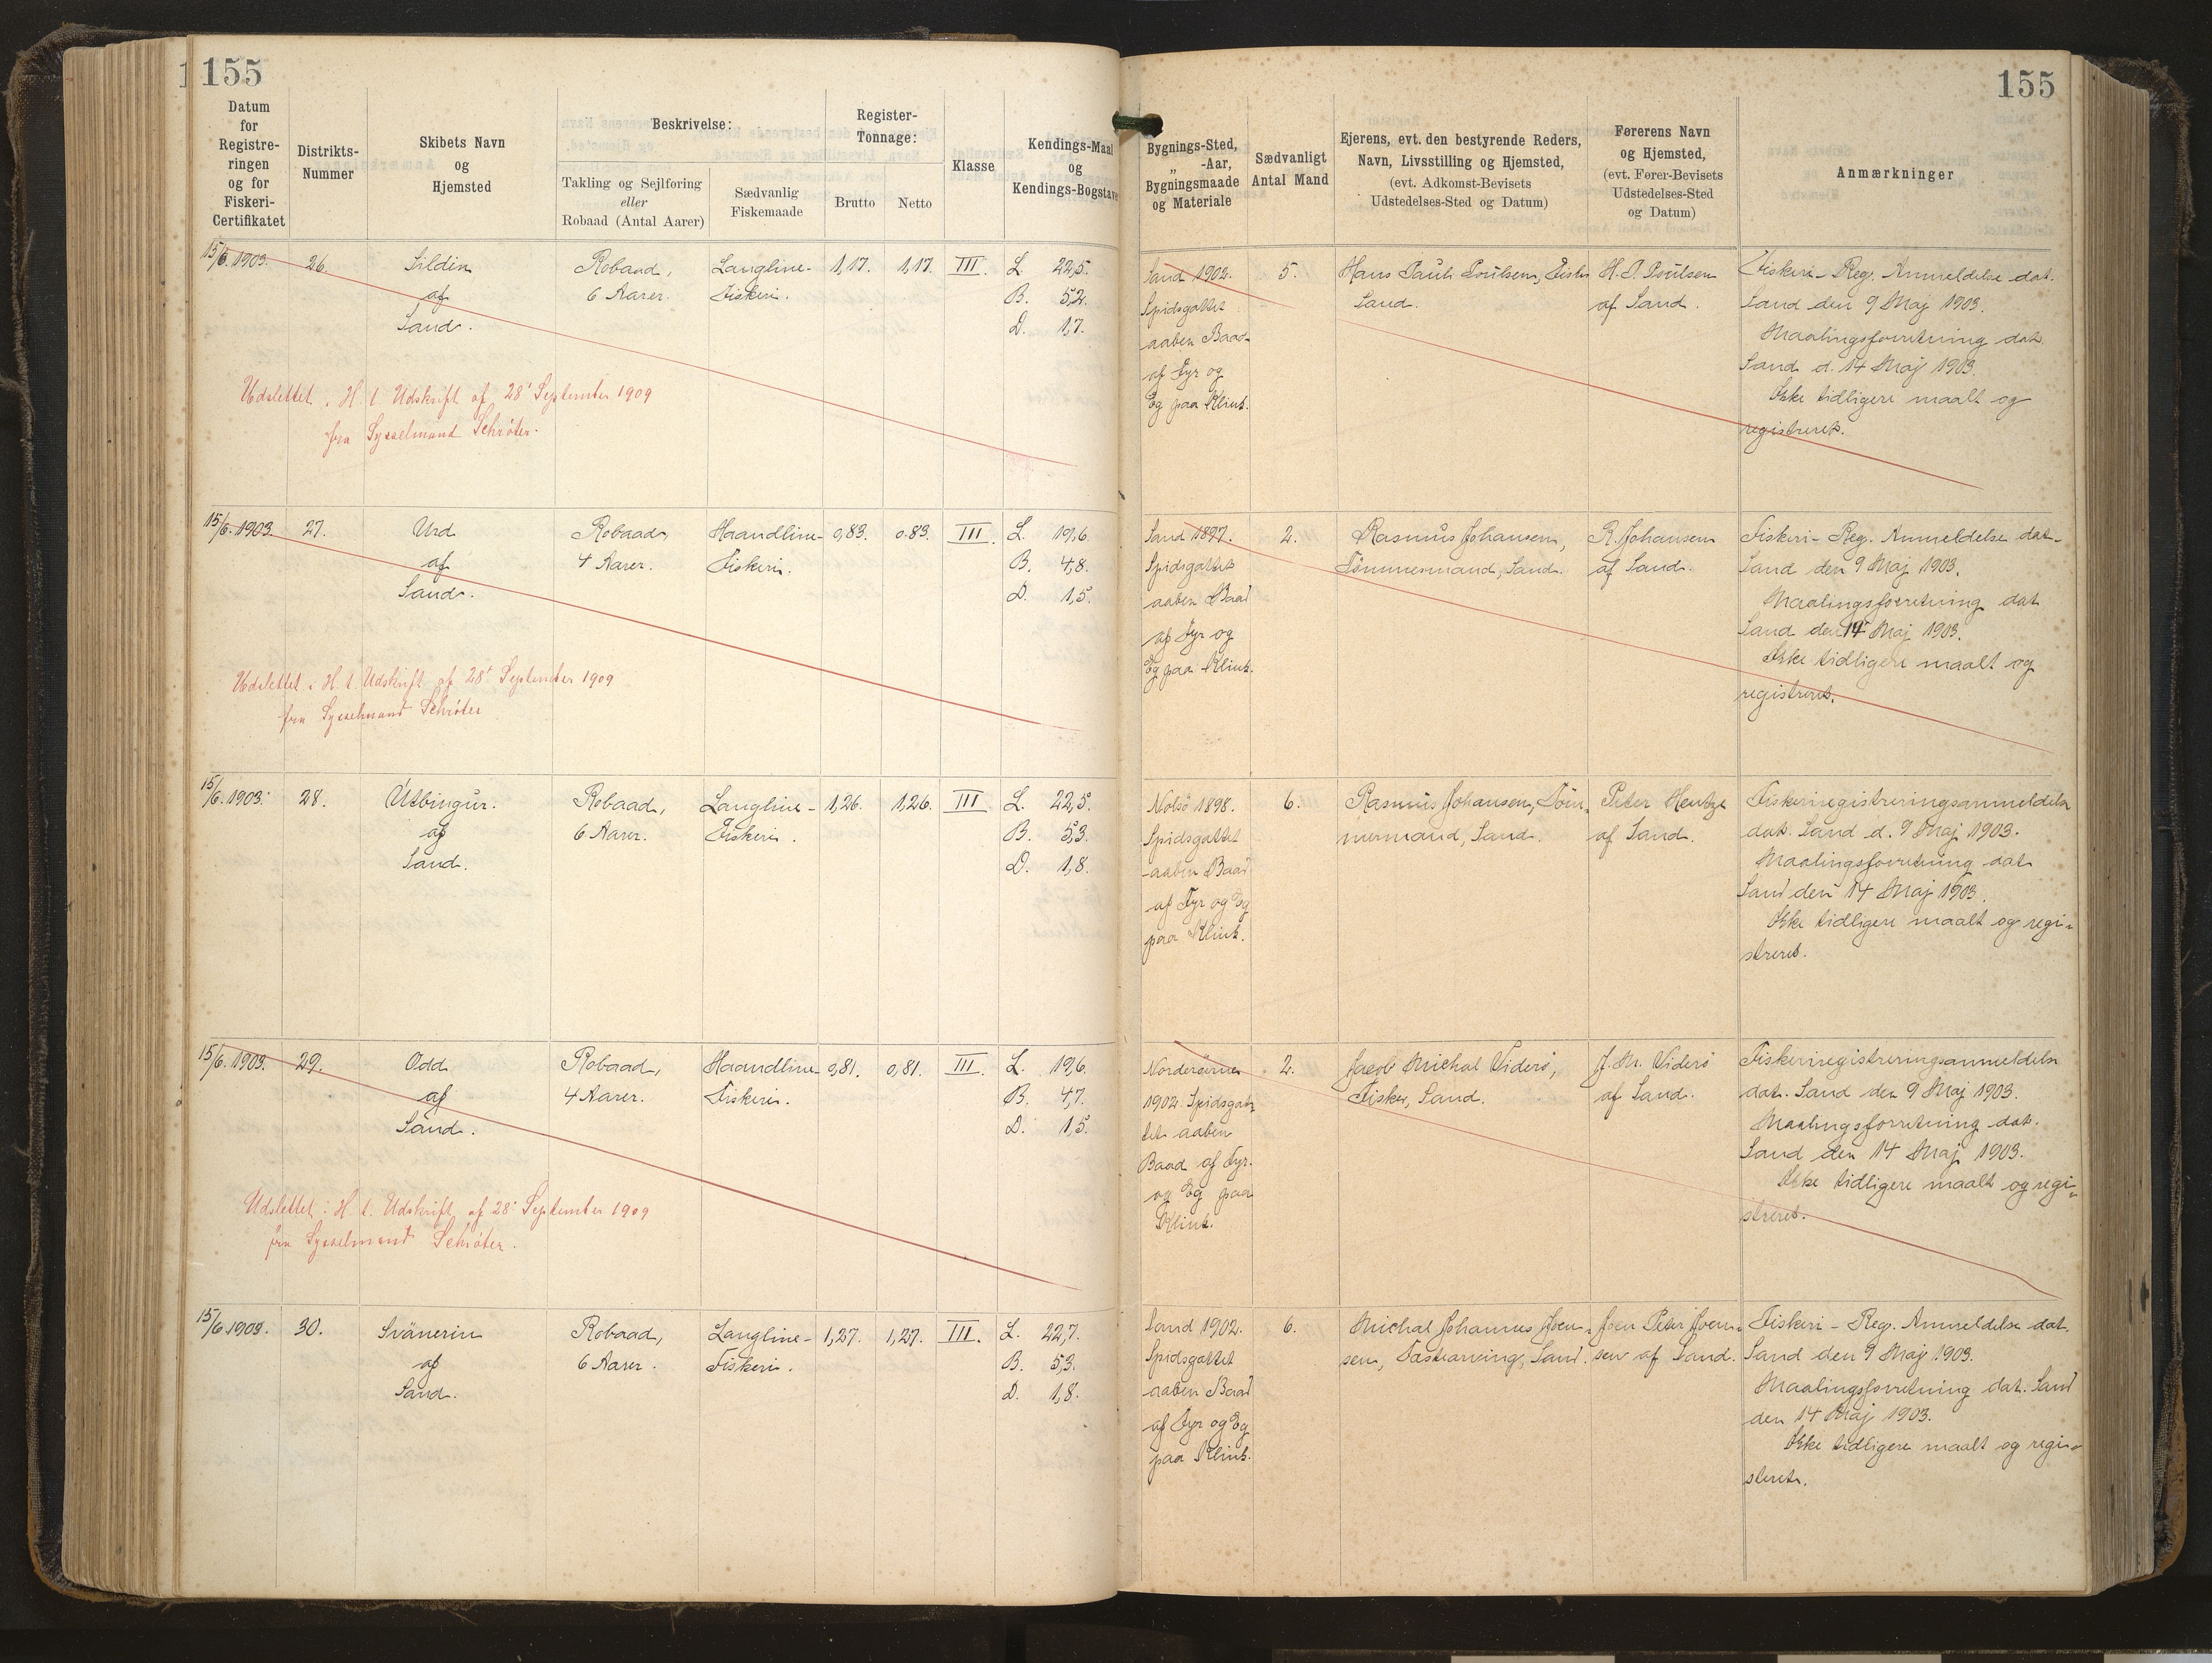 155
155
Datum
for
Registre-
ringen
og for
Fiskeri-
Certifikatet
Distrikts-
Nummer
Skibets Navn
og
Hjemsted
Beskrivelse:
Takling og Sejlføring
eller
Robaad (Antal Aarer)
Sædvanlig
Fiskemaade
Register-
Tonnage:
Brutto
Netto
Klasse
Kendings-Maal
og
Kendings-Bogstave
Bygnings-Sted,
„ -Aar,
Bygningsmaade
og Materiale
Sædvanligt
Antal Mand
Ejerens, evt. den bestyrende Reders,
Navn, Livsstilling og Hjemsted,
(evt. Adkomst-Bevisets
Udstedelses-Sted og Datum)
Førerens Navn
og Hjemsted,
(evt. Fører-Bevisets
Udstedelses-Sted
og Datum)
Anmærkninger
15/6. 1903.
26.
Sildin
af
Sand.
Robaad,
6 Aarer.
Langline-
Fiskeri.
1,17.
1,17.
III.
L. 22,5.
B. 5,2.
D. 1,7.
Sand 1902.
Spidsgattet
aaben Baad
af Fyr og
Eg paa Klink.
5.
Hans Pauli Poulsen, Fisker
Sand.
H. P. Poulsen
af Sand.
Fiskeri-Reg. Anmeldelse dat.
Sand den 9 Maj 1903.
Maalingsforretning dat.
Sand d. 14 Maj 1903.
Ikke tidligere maalt og
registreret.
Udslettet i H. t. Udskrift af 28' September 1909
fra Sysselmand Schröter.
15/6. 1903.
27.
Urd
af
Sand.
Robaad,
4 Aarer.
Haandline-
Fiskeri.
0,83.
0.83.
III.
L. 19,6.
B. 4,8.
D. 1,5.
Sand 1897.
Spidsgattet
aaben Baad
af Fyr og
Eg paa Klink.
2.
Rasmus Johansen,
Tömmermand, Sand.
R. Johansen
af Sand.
Fiskeri-Reg. Anmeldelse dat.
Sand den 9 Maj 1903.
Maalingsforretning dat
Sand den 14 Maj 1903.
Ikke tidligere maalt og
registreret.
Udslettet i H. t. Udskrift af 28' September 1909
fra Sysselmand Schröter
15/6. 1903.
28.
Útbingur.
af
Sand.
Robaad,
6 Aarer.
Langline-
Fiskeri.
1,26.
1,26.
III.
L. 22,5.
B. 5,3.
D. 1,8.
Nolsö 1898.
Spidsgattet
aaben Baad
af Fyr og Eg
paa Klink.
6.
Rasmus Johansen, Töm-
mermand, Sand.
Peter Hentze
af Sand.
Fiskeriregistreringsanmeldelse
dat. Sand d. 9 Maj 1903.
Maalingsforretning dat
Sand den 14 Maj 1903.
Ikke tidligere maalt og regi-
streret.
15/6. 1903.
29.
Odd
af
Sand.
Robaad,
4 Aarer.
Haandline-
Fiskeri.
0,81.
0,81.
III.
L. 19,6.
B. 4,7.
D. 1,5.
Norderörne
1902. Spidsgat-
tet aaben
Baad af Fyr.
og Eg paa
Klink.
2.
Jacob Michal Viderö,
Fisker, Sand.
J. M. Viderö
af Sand.
Fiskeriregistreringsanmeldelse
dat. Sand den 9 Maj 1903.
Maalingsforretning dat.
Sand den 14 Maj 1903.
Ikke tidligere maalt og regi-
streret.
Udslettet i H. t. Udskrift af 28' September 1909
fra Sysselmand Schröter.
15/6. 1903.
30.
Svänerin
af
Sand.
Robaad,
6 Aarer.
Langline-
Fiskeri.
1,27.
1,27.
III.
L. 22,7.
B. 5,3.
D. 1,8.
Sand 1902.
Spidsgattet
aaben Baad
af Fyr og Eg
paa Klink.
6.
Michal Johannes Joen-
sen, Sand.
Joen Peter Joen-
sen af Sand.
Fiskeri-Reg. Anmeldelse dat.
Sand den 9 Maj 1903.
Maalingsforretning dat. Sand
den 14 Maj 1903.
Ikke tidligere maalt og regi-
streret.